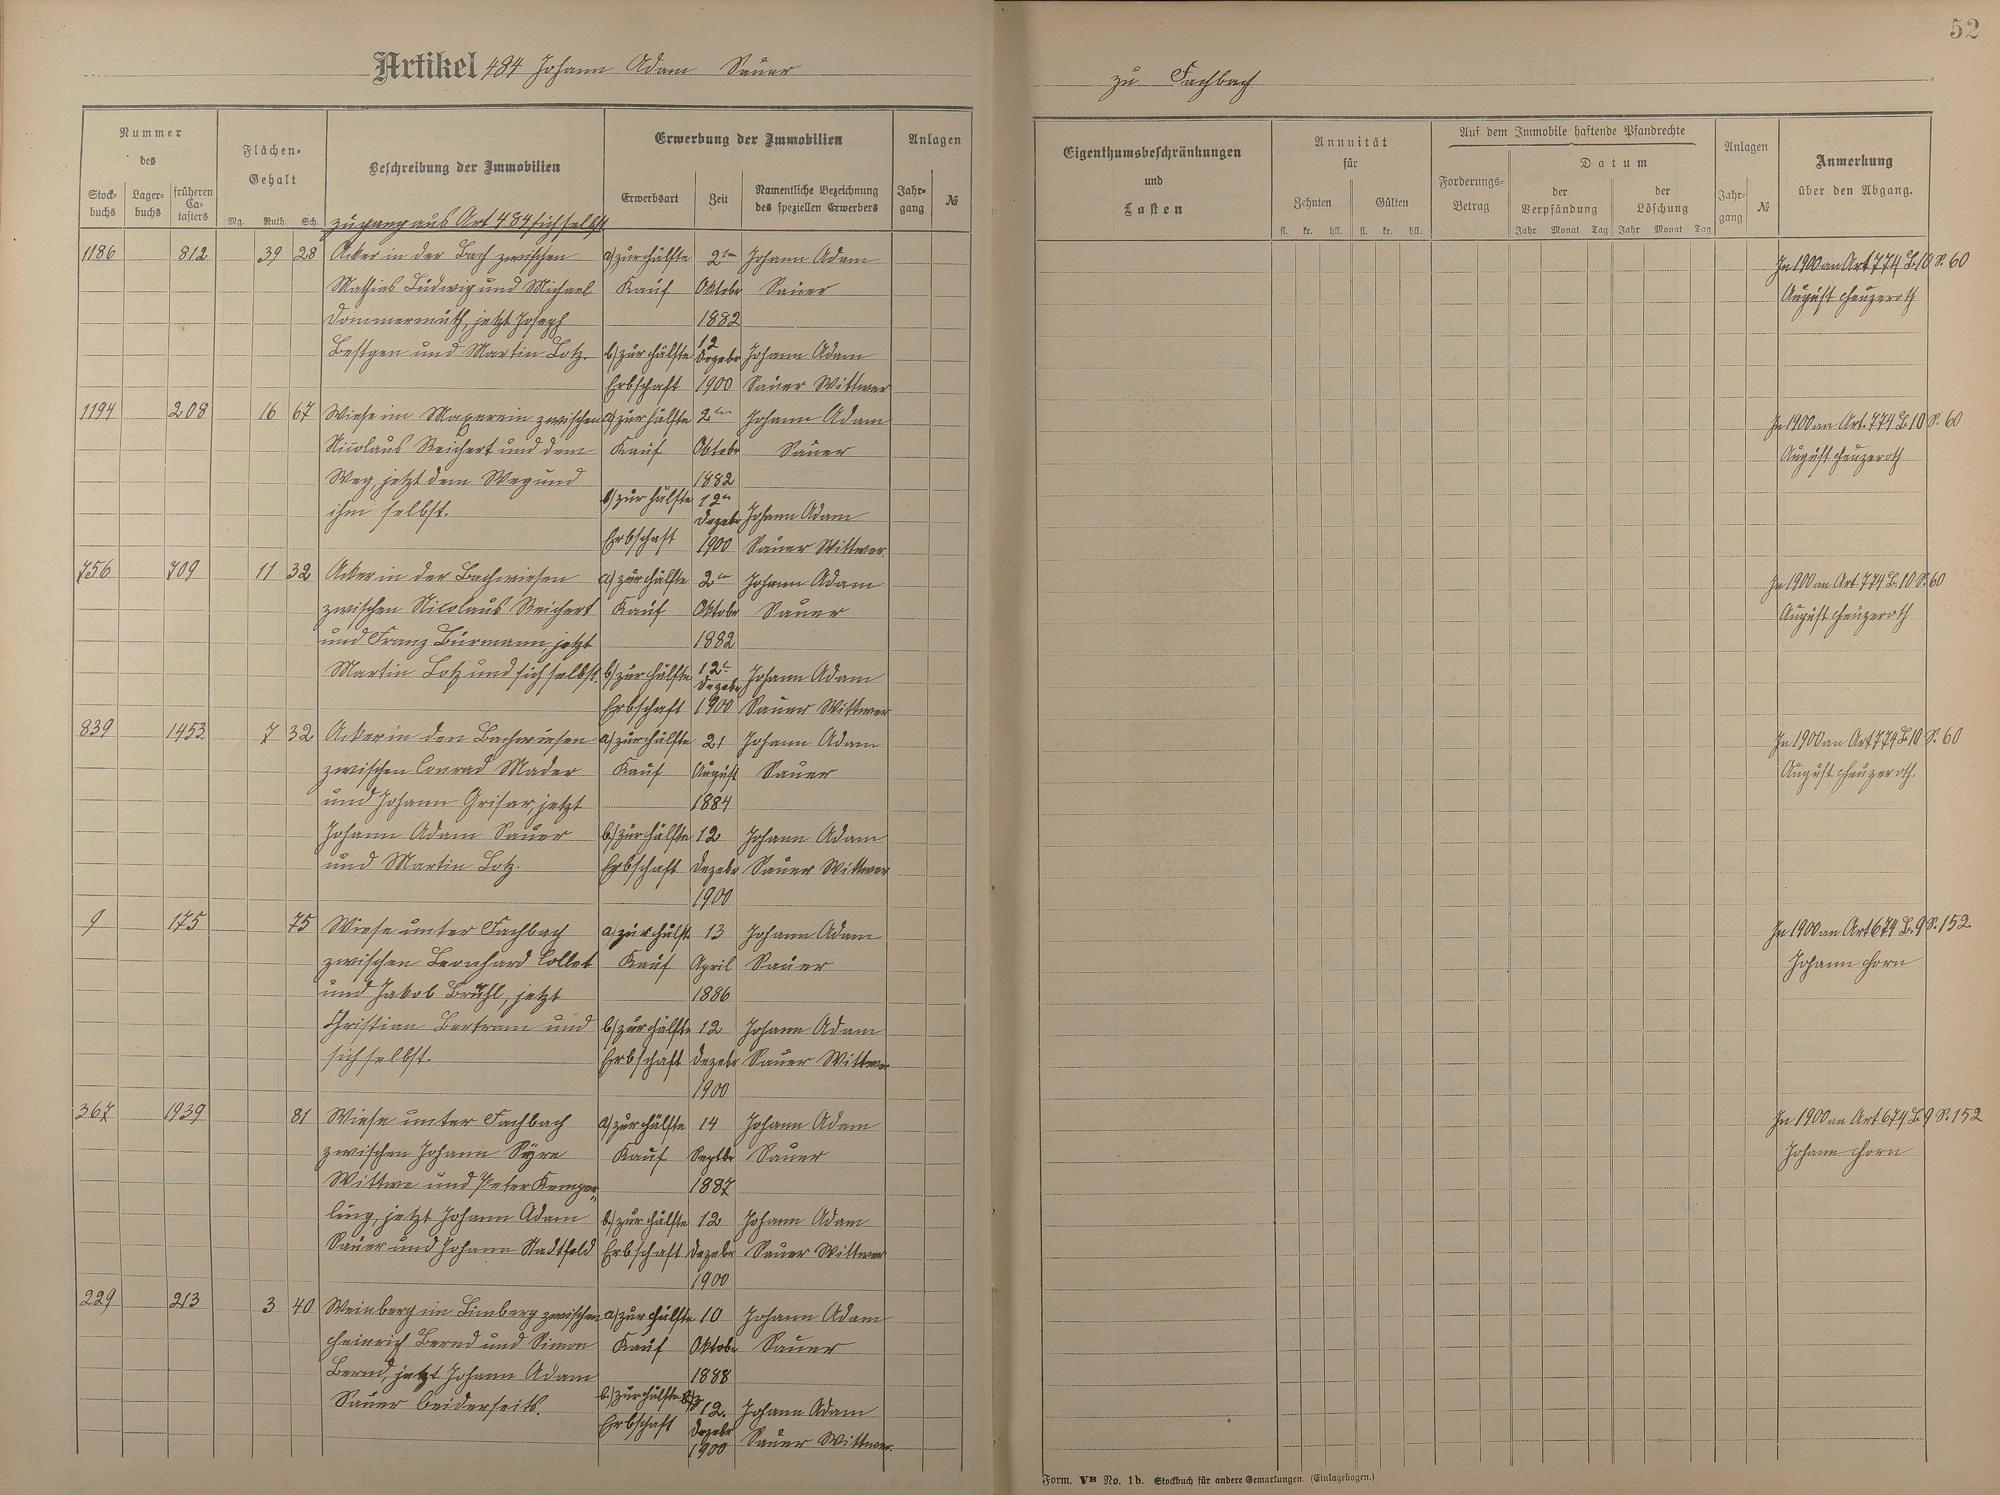 52
Artikel 484 Johann Adam Sauer
zu Fachbach
Nummer
des
Stock-
buchs
Lager-
buchs
früheren
Ca-
tasters
Flächen-
Gehalt
Mg. Ruth. Sch.
Beschreibung der Immobilien
Erwerbung der Immobilien
Erwerbsart
Zeit
Namentliche Bezeichnung
des speziellen Erwerbers
Anlagen
Jahr-
gang
№
Eigenthumsbeschränkungen
und
Lasten
Annuität
für
Zehnten
Gülten
fl. kr. hll. fl. kr. hll.
Auf dem Immobile haftende Pfandrechte
Forderungs-
Betrag
Datum
der
Verpfändung
der
Löschung
Jahr Monat Tag Jahr Monat Tag
Anlagen
Jahr-
gang
№
Anmerkung
über den Abgang.
Zugang aus Art 484 sich selbst
1186 812 39 28 Acker in der Bach zwischen a) zur Hälfte 2ten Johann Adam
Mathias Ludwig und Michael Kauf Oktobr Sauer
Dommermuth, jetzt Joseph 1882
Bestgen und Martin Lotz. b) zur Hälfte 12 Dezebr Johann Adam
Erbschaft 1900 Sauer Wittwer
In 1900 an Art. 774 B. 10 S. 60
August Heuzeroth
1194 208 16 67 Wiese im Maxerein zwischen a) zur Hälfte 2ten Johann Adam
Nicolaus Reichert und dem Kauf Oktobr Sauer
Weg, jetzt dem Weg und 1882
ihm selbst. b) zur Hälfte 12n Dezebr Johann Adam
Erbschaft 1900 Sauer Wittwer
In 1900 an Art. 774 B. 10 S. 60
August Heuzeroth
756 709 11 32 Acker in der Bachwiesen a) zur Hälfte 2en Johann Adam
zwischen Nicolaus Reichert Kauf Oktobr Sauer
und Franz Burmann, jetzt 1882
Martin Lotz und sich selbst. b) zur Hälfte 12t Dezebr Johann Adam
Erbschaft 1900 Sauer Wittwer
In 1900 an Art. 774 B. 10 S. 60
August Heuzeroth
839 1453 7 32 Acker in den Bachwiesen a) zur Hälfte 21 Johann Adam
zwischen Conrad Mader Kauf August Sauer
und Johann Grisar, jetzt 1884
Johann Adam Sauer b) zur Hälfte 12 Johann Adam
und Martin Lotz. Erbschaft Dezebr Sauer Wittwer
1900
In 1900 an Art 774 B 10 S. 60
August Heuzeroth.
9 175 75 Wiese unter Fachbach a) zur Hälft. 13 Johann Adam
zwischen Leonhard Collet Kauf April Sauer
und Jakob Brühl, jetzt 1886
Christian Bertram und b) zur Hälfte 12 Johann Adam
sich selbst. Erbschaft Dezebr Sauer Wittwer
1900
In 1900 an Art 674 B. 9 S. 152
Johann Horn
367 1939 81 Wiese unter Fachbach a) zur Hälfte 14 Johann Adam
zwischen Johann Syre Kauf Septbr Sauer
Wittwe und Peter Kemper- 1887
ling, jetzt Johann Adam b) zur Hälfte 12 Johann Adam
Sauer und Johann Stadtfeld Erbschaft Dezebr Sauer Wittwer
1900
In 1900 an Art 674 B 9 S. 152
Johann Horn
229 213 3 40 Weinberg im Limberg zwischen a) zur Hälfte 10 Johann Adam
Heinrich Bernd und Simon Kauf Oktobr Sauer
Bernd, jetzt Johann Adam 1888
Sauer beiderseits. b) zur Hälfte 12. Johann Adam
Erbschaft Dezebr Sauer Wittwer
1900
Form. VB No. 1b. Stockbuch für andere Gemarkungen. (Einlagebogen.)